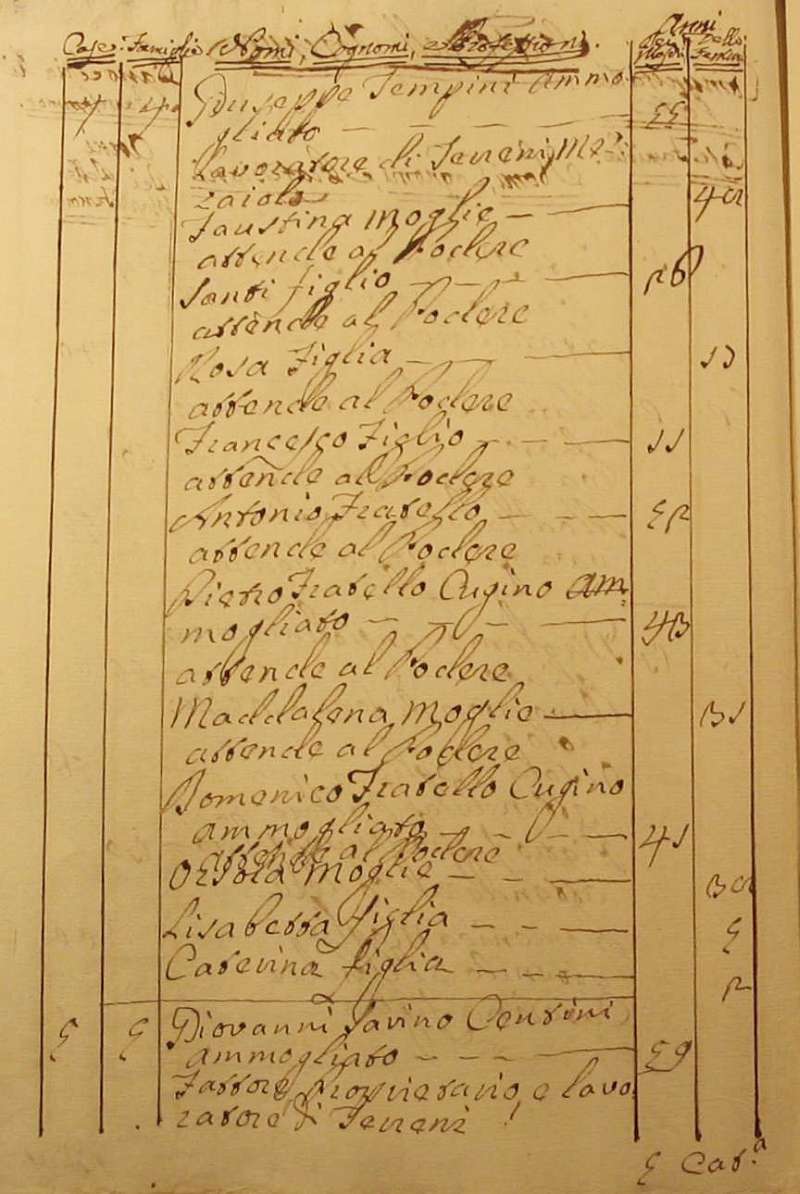 Case. Famiglie Nomi, Cognomi, e Professioni. Anni
dei Maschi delle Femine
4 4 Giuseppe Tempini ammo-
gliato — — — — 55
Lavoratore di Terreni, Mez-
zaiolo
Faustina Moglie — — 40
attende al Podere
Santi figlio — — — — 26
attende al Podere
Rosa Figlia — — — 13
attende al Podere
Francesco Figlio — — — 11
attende al Podere
Antonio Fratello — — — 52
attende al Podere
Pietro Fratello Cugino am-
mogliato — — — — 43
attende al Podere
Maddalena Moglie — 31
attende al Podere
Domenico Fratello Cugino
ammogliato — — — — 41
attende al Podere
Orsola Moglie — — — 30
Lisabetta figlia — — — 5
Caterina figlia — — — 2
5 5 Giovanni Savino Centini
ammogliato — — — 59
Fattore, Proprietario, e lavo-
ratore di Terreni
5 Cat.a